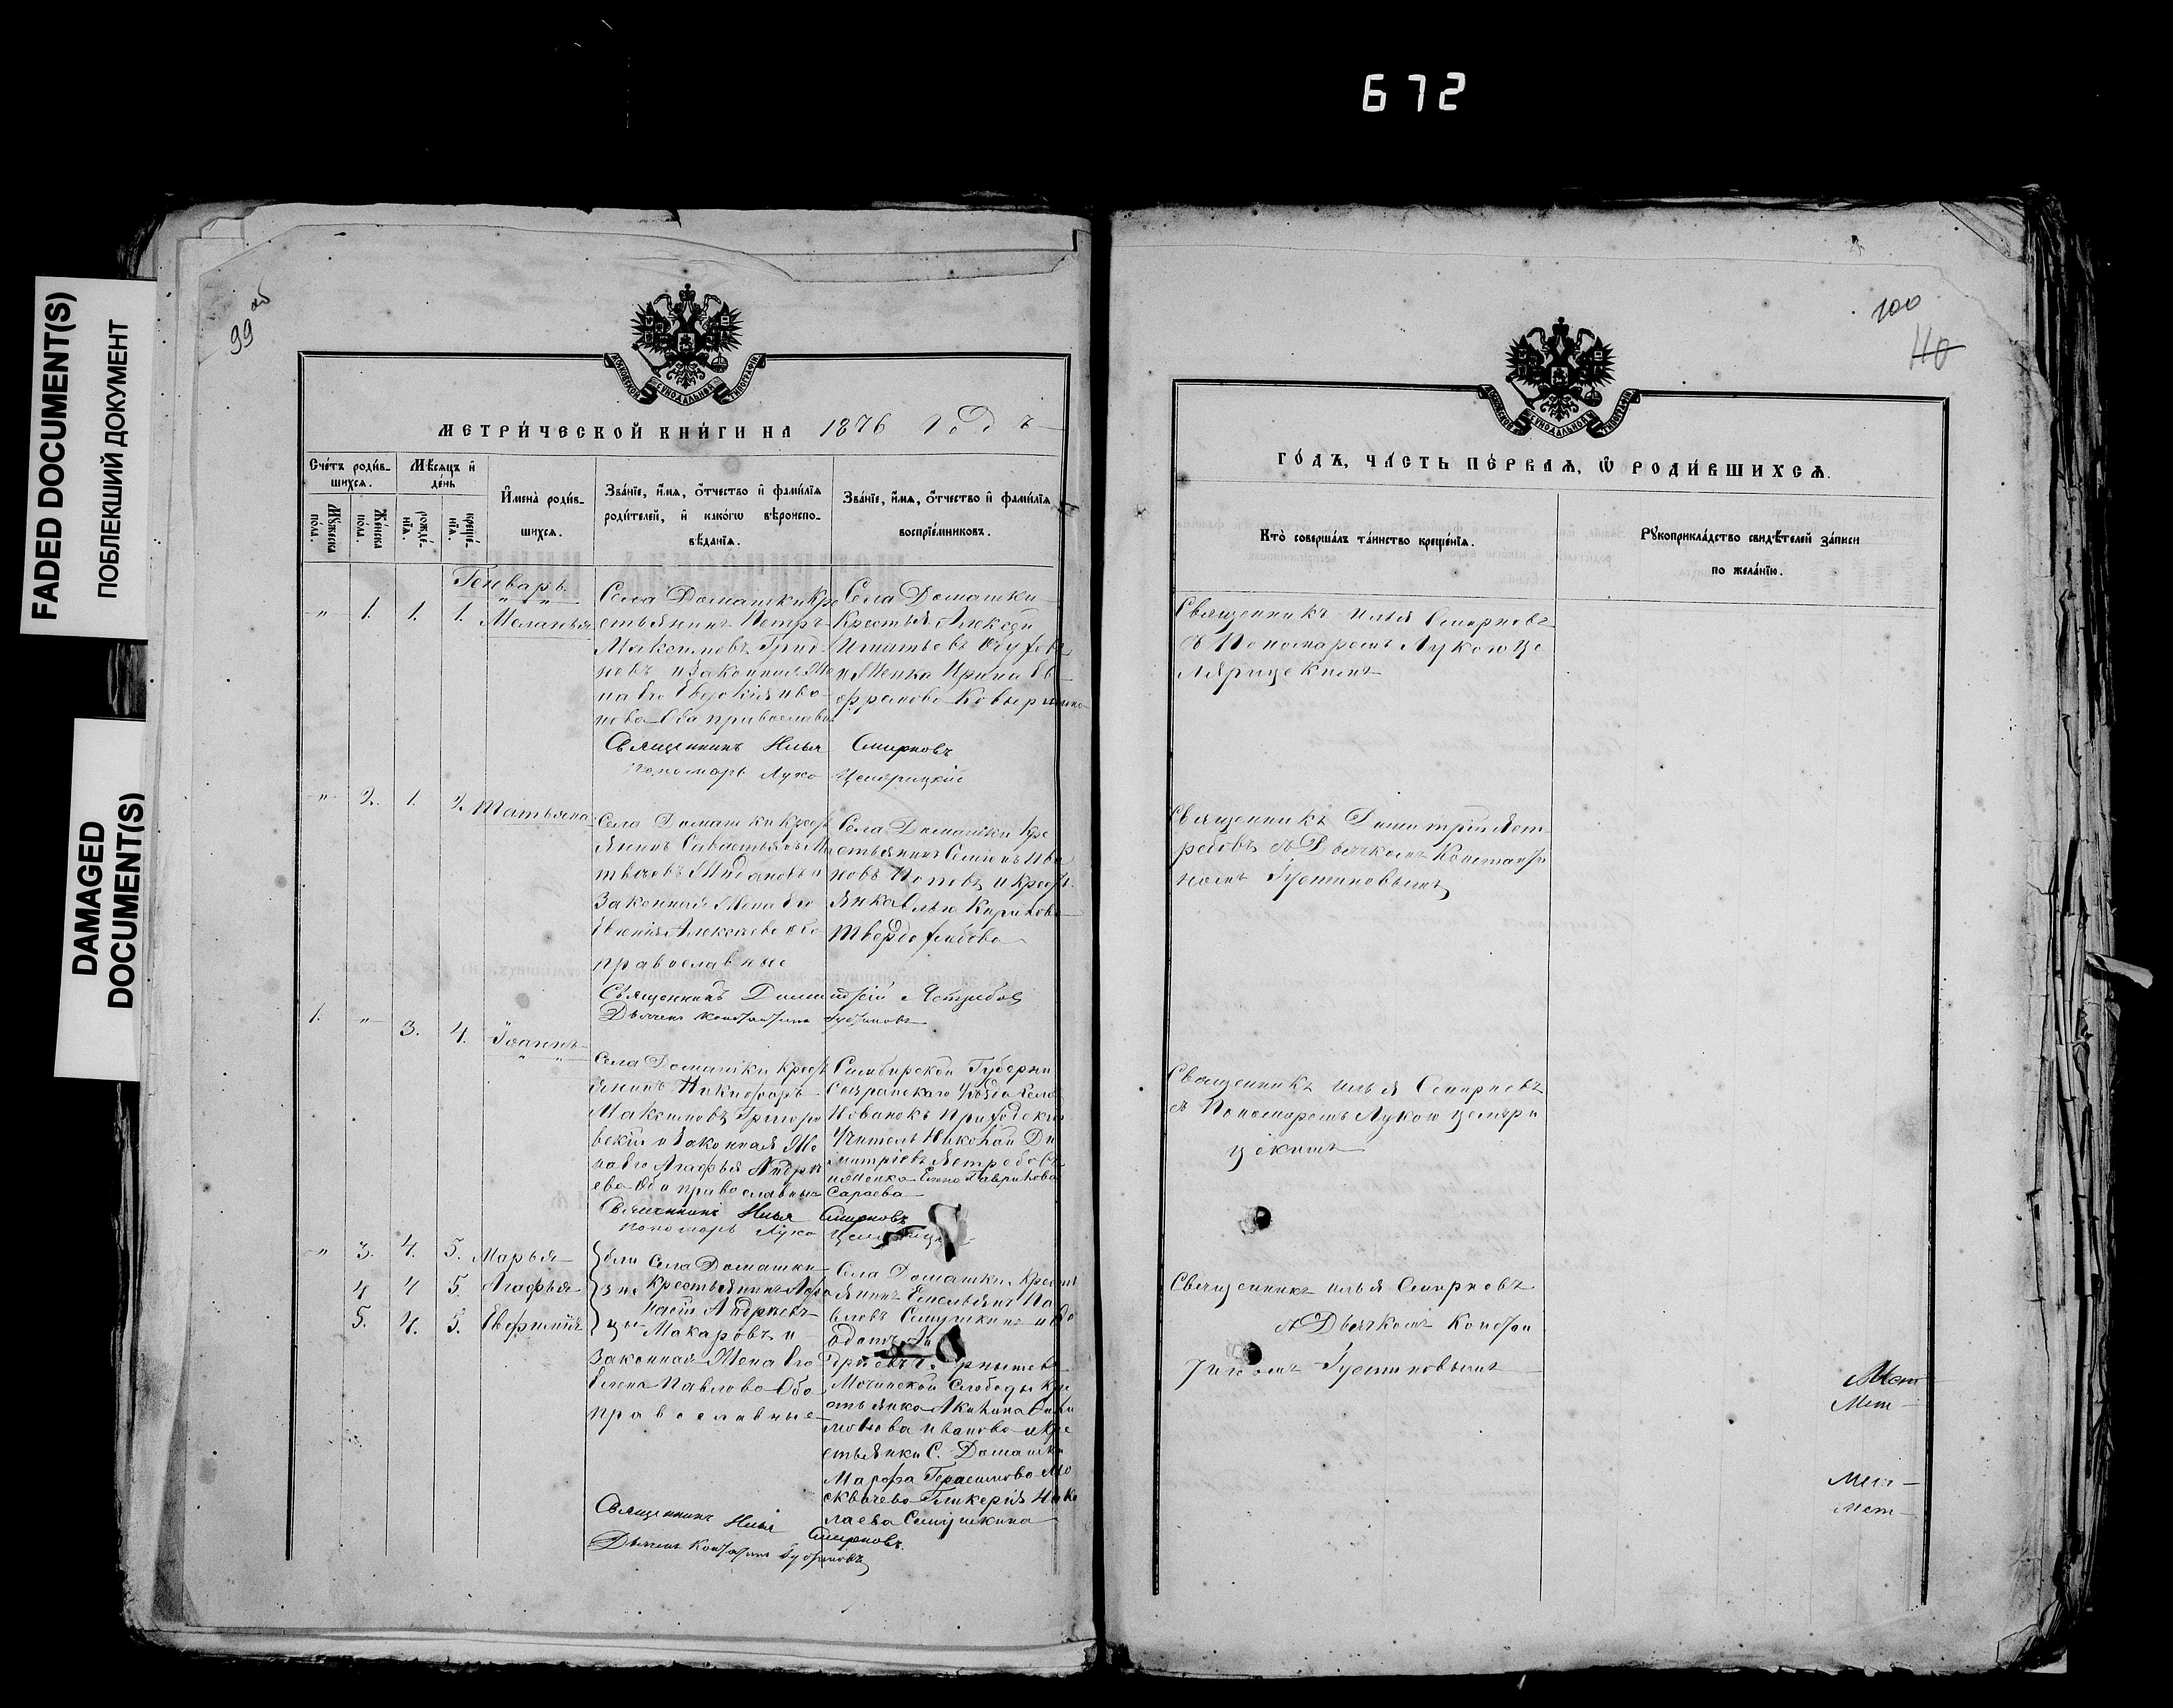 672
FADED DOCUMENT(S)
ПОБЛЕКШИЙ ДОКУМЕНТ
DAMAGED
DOCUMENT(S)
99 об
МОСКОВСКОЙ СУНОДАЛЬНОЙ ТИПОГРАФІИ
МЕТРИ́ЧЕСКОЙ КНИ́ГИ НА 1876 Годъ
Сче́тъ роди́в-
шихся.
Мѣ́сяцъ и҆
де́нь
Мꙋ́жеска
пола.
Же́нска
пола.
рожде́-
нїѧ.
креще́-
нїѧ.
И҆мена̀ роди́в-
шихся.
Зва́нїе, и҆́мя, ѻ҆́тчество и҆ фами́лїя
роди́телей, и҆ како́гѡ вѣроиспо-
вѣ́данїя.
Зва́нїе, и҆́мя, ѻ҆́тчество и҆ фами́лїя
воспрїе́мниковъ.
Генварь
" 1. 1. 1. Меланья
Села Домашки Кре
стьянинъ Петръ
Максимовъ Грид
новъ и законная Же
на его Евдокія Ива
нова Оба православн
Села Домашки
Крестья Алексѣй
Игнатьевъ
и Женка Ирина Ев
фремова
Священникъ Илья Смирновъ
Пономарь Лука Цемѣрицкій
" 2. 1. 2. Татьяна
Села Домашки Крест
янинъ Савастьянъ Ма
твѣевъ и
Законная Жена его
Евгенія Алексѣева обо
православные
Села Домашки Кре
стьянинъ Семіонъ Ива
новъ Поповъ и Крест
янка Ольга Кирилова
Твердохлебова
Священникъ Димитрій Ястребовъ
Дьячекъ Константинъ Густиновъ
1. " 3. 4. Іоаннъ
Села Домашки Крест
янинъ Никифоръ
Максимовъ Григоро
вскій и Законная Же
на его Агафья Андре
ева Оба православные
Симбирской Губерни
Сызранскаго Уѣзда Села
Приходскій
Учитель Николай Ди
митріевъ Ястребовъ
и Женка Елена Гаврилова
Сараева
Священникъ Илья Смирновъ
Пономарь Лука
" 3. 4. 5. Марья
4 4 5. Агафья
5. 4. 5. Евфимія
бли
зне
цы
Села Домашки
Крестьянинъ Афо
насій Андреевъ
Макаровъ и
Законная Жена его
Елена Павлова Обо
православные
Села Домашки Крест
янинъ Емельянъ Па
вловъ Семушкинъ и
Слободы Кре
стьянка Акилина
Иванова и Кре
стьянки С. Домашки
Марфа Герасимова Мо
сквичева Гликерія Нико
лаева Семушкина
Священникъ Илья Смирновъ.
Дьячекъ Константинъ Густиновъ
100
40
МОСКОВСКОЙ СУНОДАЛЬНОЙ ТИПОГРАФІИ
ГО́ДЪ, ЧА́СТЬ ПЕ́РВАЯ, Ѽ РОДИ́ВШИХСЯ.
Кто̀ соверша́лъ та́инство креще́нїя.
Рꙋкоприкла́дство свидѣ́телей за́писи
по жела́нїю.
Священникъ Илья Смирновъ
съ Пономаремъ Лукою Це
мѣрицскимъ
Священникъ Димитрій Яст
ребовъ съ Дьячкомъ Константи
номъ Густиновымъ
Священникъ Илья Смирновъ
съ Пономаремъ Лукою Цемѣри
цскимъ
Священникъ Илья Смирновъ
съ Дьячкомъ Констан
тиномъ Густиновымъ
Мет
Мет
Мет
Мет